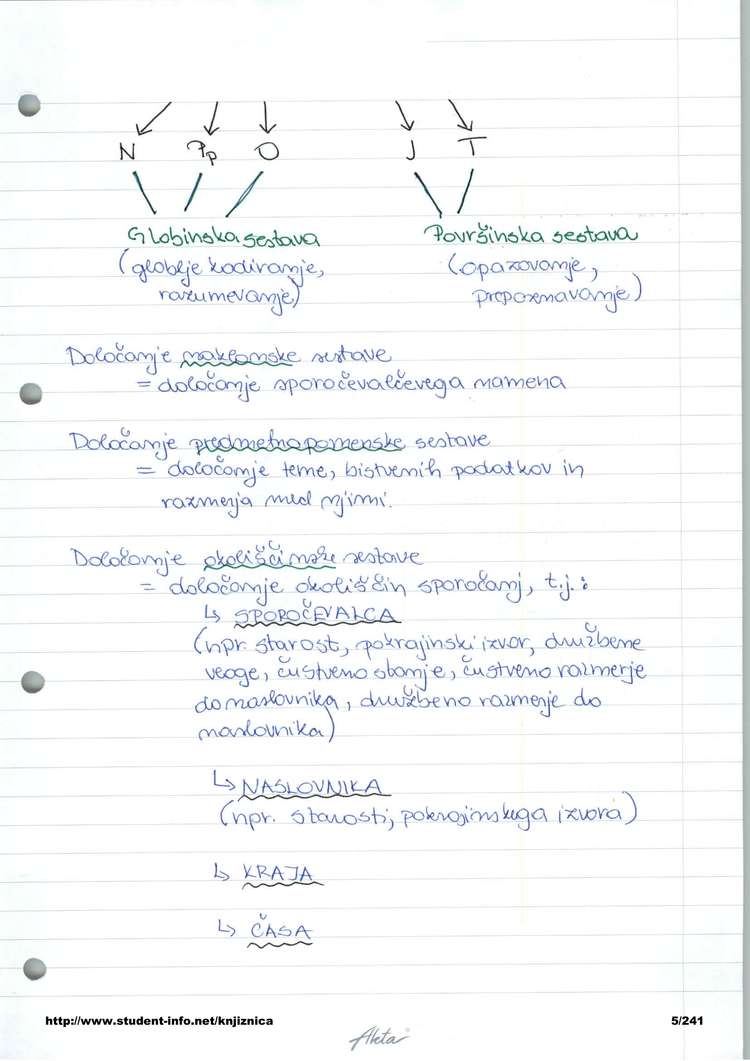 N Pp O J T
Globinska sestava Površinska sestava
(globlje kodiranje, (opazovanje,
razumevanje) prepoznavanje)
Določanje naklonske sestave
= določanje sporočevalčevega namena
Določanje predmetnopomenske sestave
= določanje teme, bistvenih podatkov in
razmerja med njimi.
Določanje okoliščinske sestave
= določanje okoliščin sporočanj, t.j.:
↳ SPOROČEVALCA
(npr. starost, pokrajinski izvor, družbene
vloge, čustveno stanje, čustveno razmerje
do naslovnika, družbeno razmerje do
naslovnika)
↳ NASLOVNIKA
(npr. starosti, pokrajinskega izvora)
↳ KRAJA
↳ ČASA
http://www.student-info.net/knjiznica 5/241
Akta